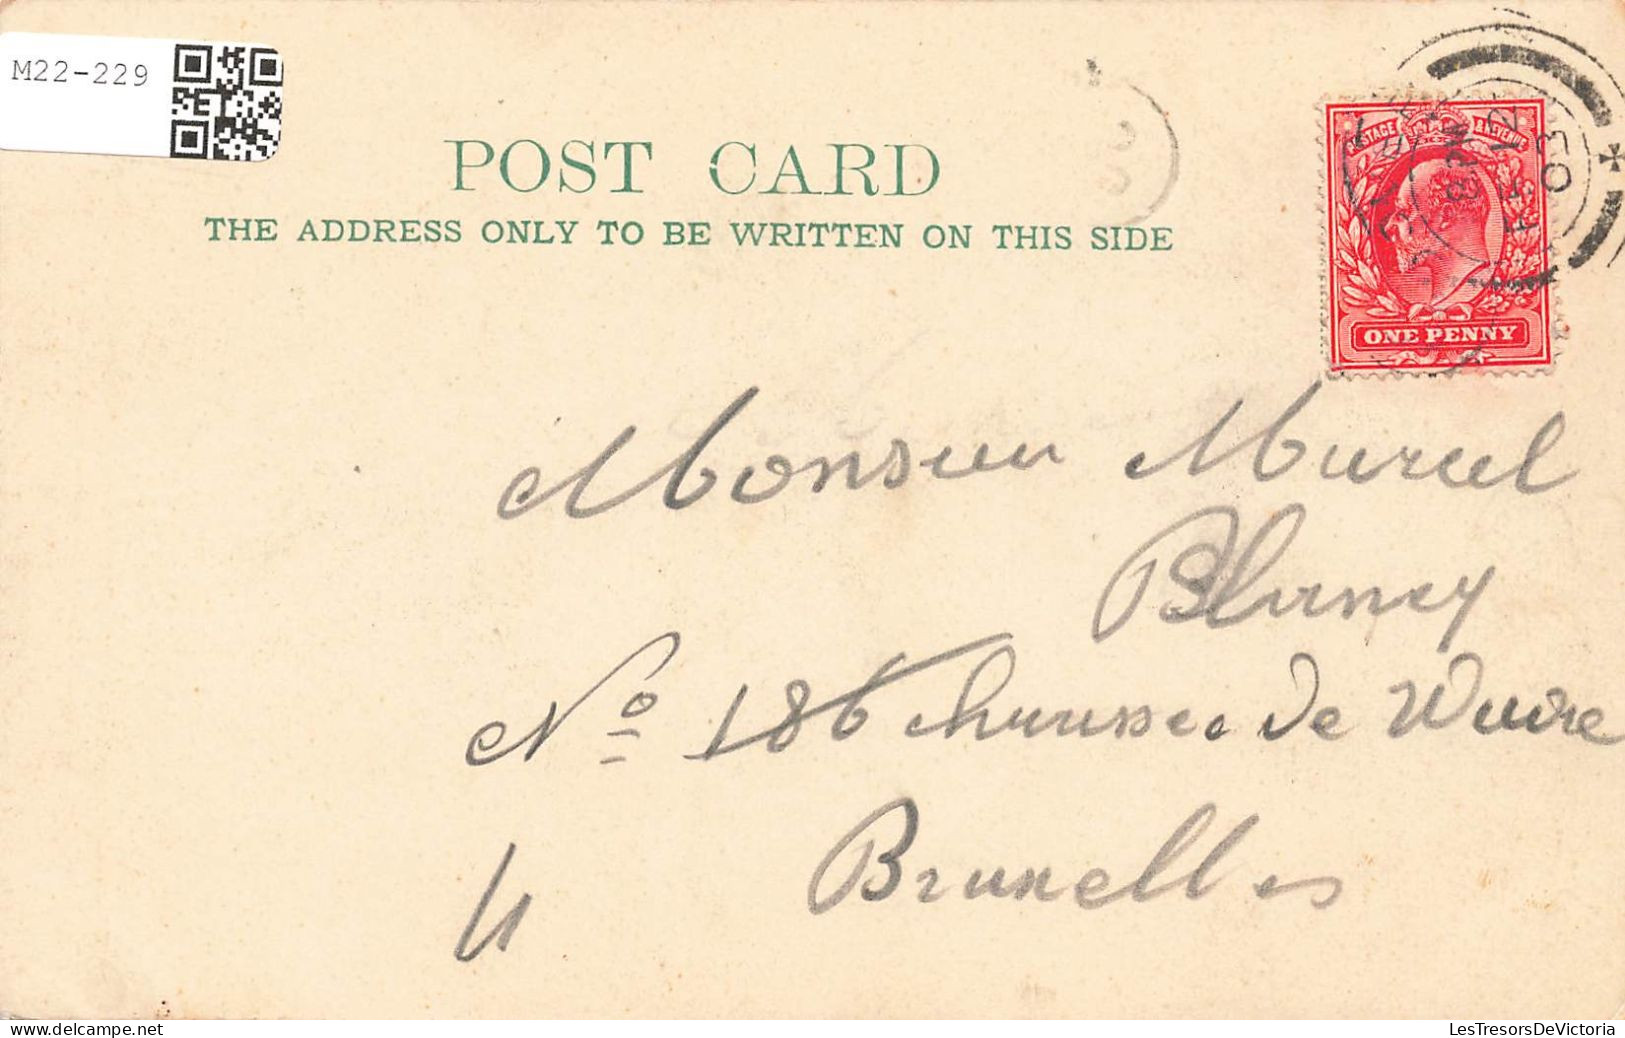 M22-229
POST CARD
THE ADDRESS ONLY TO BE WRITTEN ON THIS SIDE
POSTAGE & REVENUE
ONE PENNY
8 PM
FE 12
03
Monsieur Marcel
Blancy
No 186 Chaussee de Wavre
Bruxelles
LesTresorsDeVictoria